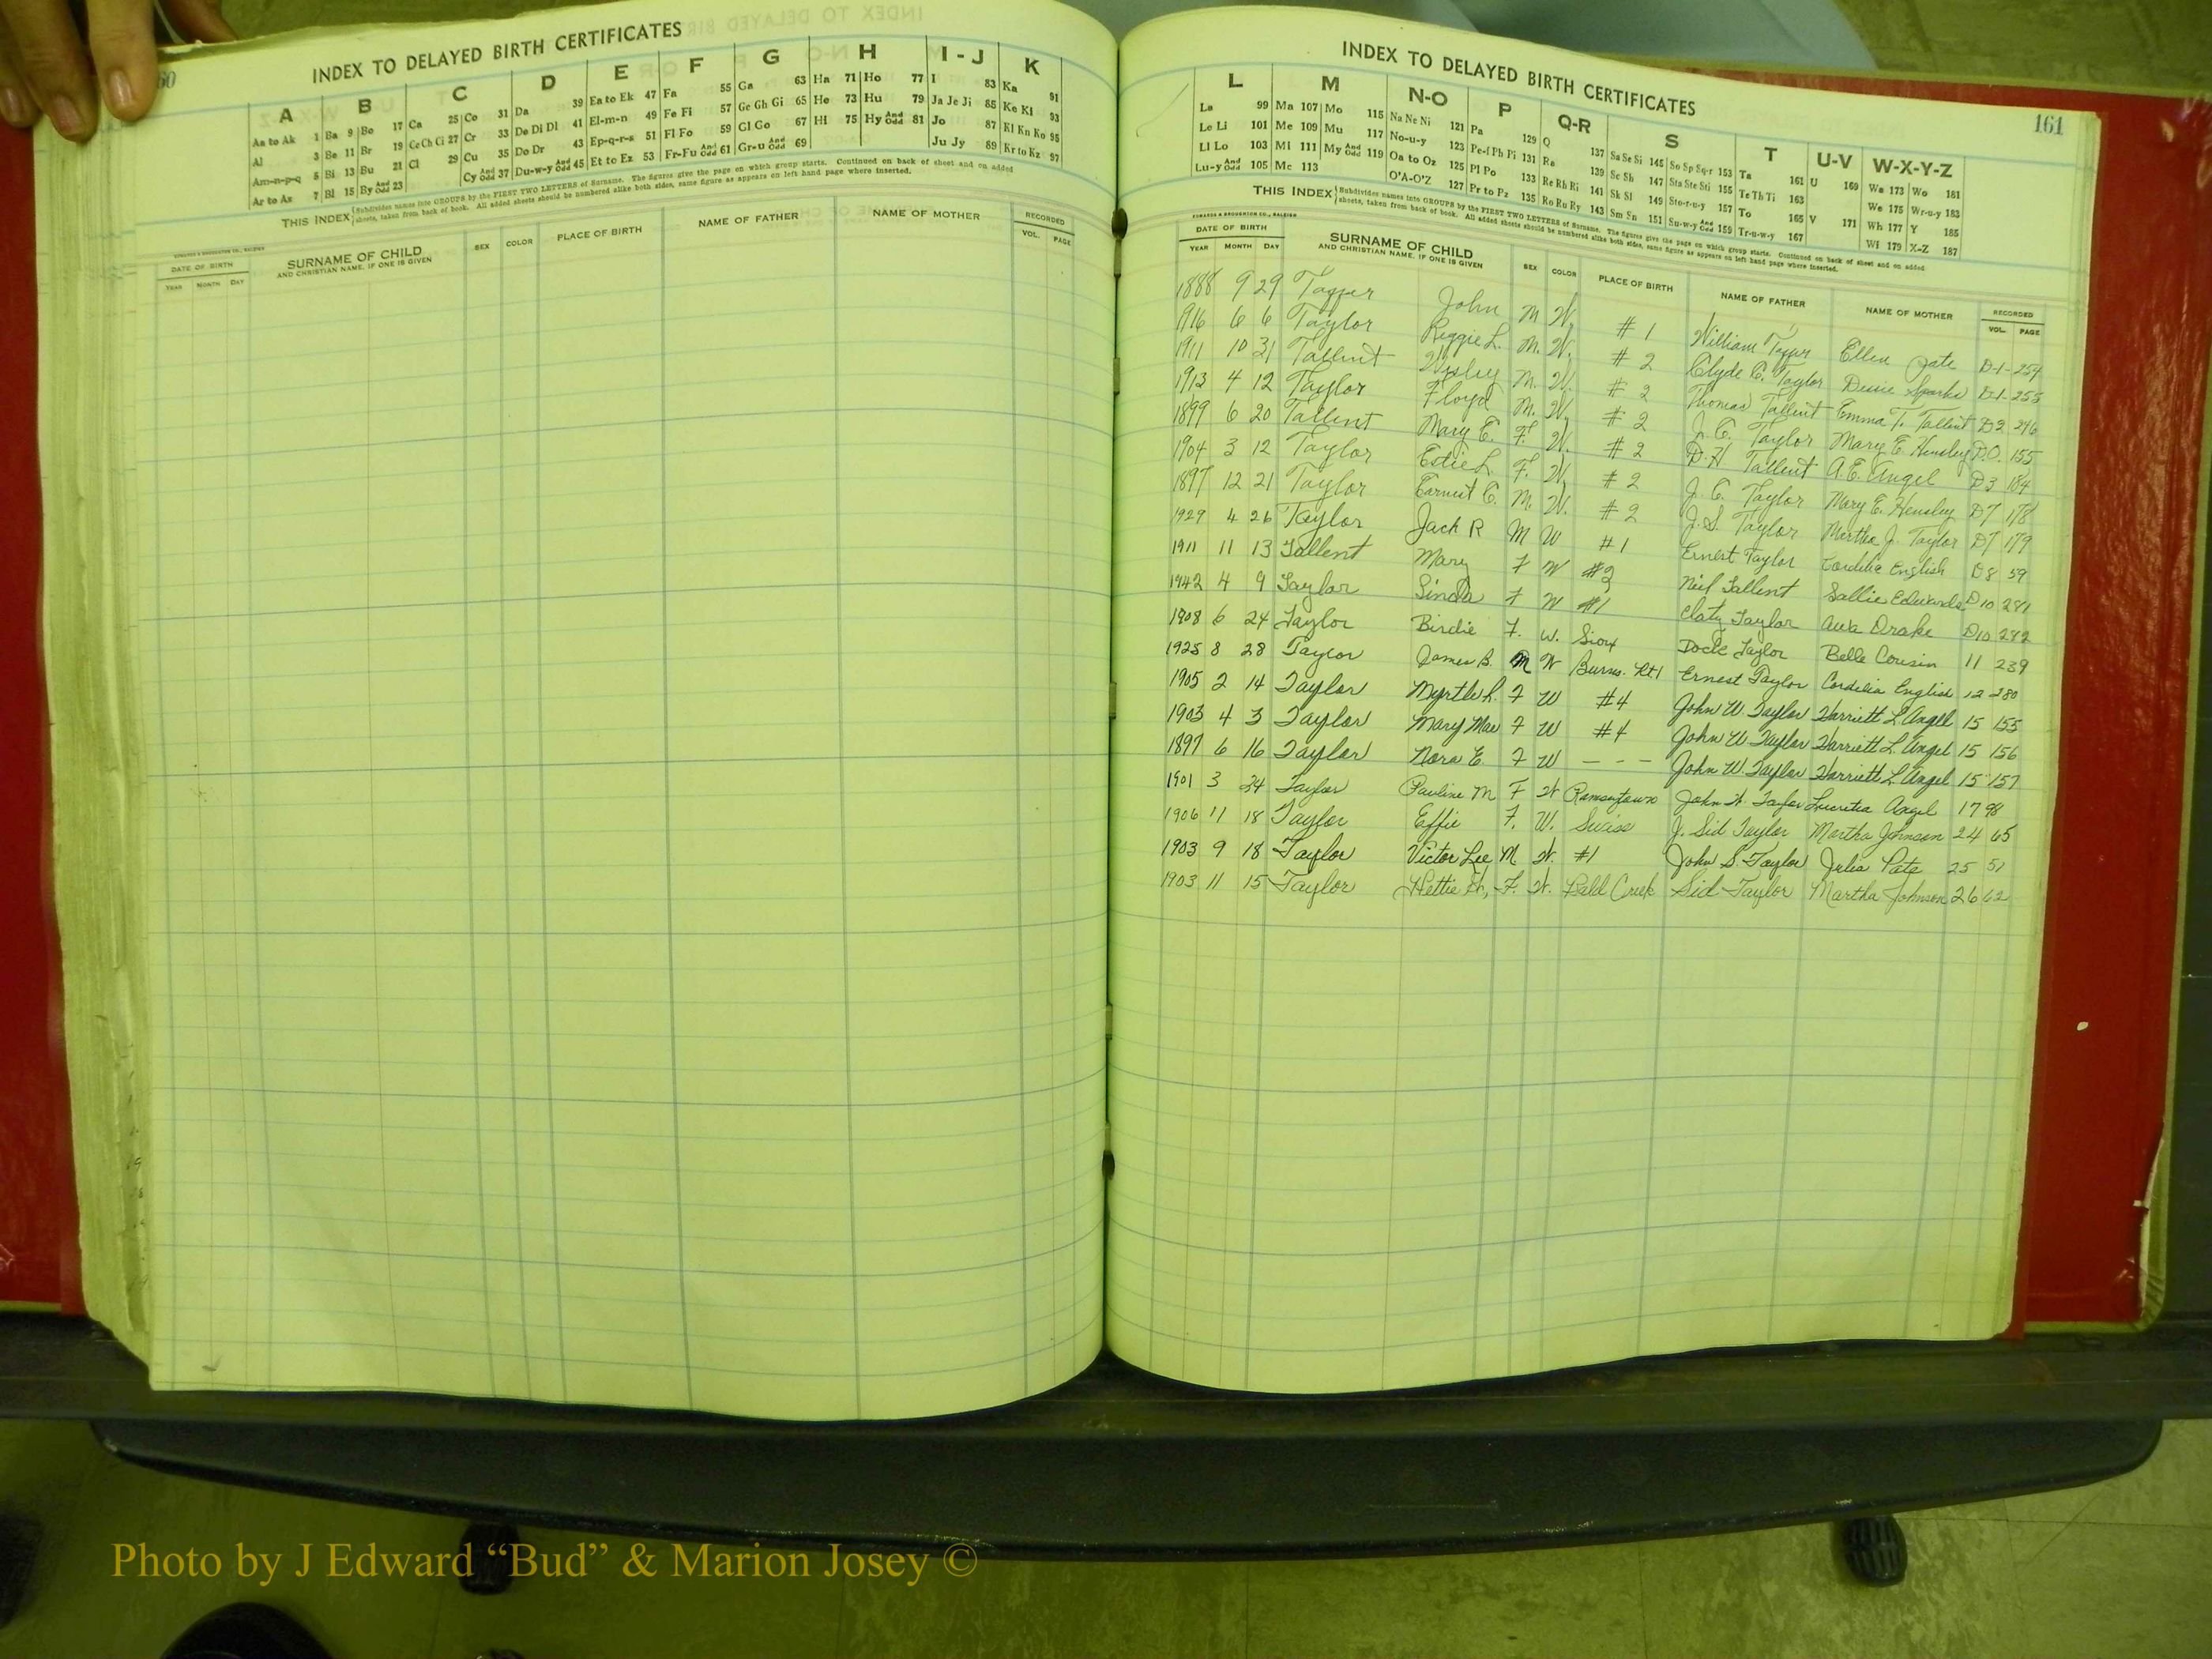 60
INDEX TO DELAYED BIRTH CERTIFICATES
A B C D E F G H I - J K
Aa to Ak 1 Ba 9 Bo 17 Ca 25 Co 31 Da 39 Ea to Ek 47 Fa 55 Ga 63 Ha 71 Ho 77 I 83 Ka 91
Al 3 Be 11 Br 19 Ce Ch Ci 27 Cr 33 De Di Dl 41 El-m-n 49 Fe Fi 57 Ge Gh Gi 65 He 73 Hu 79 Ja Je Ji 85 Ke Kl 93
Am-n-p-q 5 Bi 13 Bu 21 Cl 29 Cu 35 Do Dr 43 Ep-q-r-s 51 Fl Fo 59 Gl Go 67 Hi 75 Hy And Odd 81 Jo 87 Kl Kn Ko 95
Ar to Az 7 Bl 15 By And Odd 23 Cy And Odd 37 Du-w-y And Odd 45 Et to Ez 53 Fr-Fu And Odd 61 Gr-u And Odd 69 Ju Jy 89 Kr to Kz 97
THIS INDEX Subdivides names into GROUPS by the FIRST TWO LETTERS of Surname. The figures give the page on which group starts. Continued on back of sheet and on added
sheets, taken from back of book. All added sheets should be numbered alike both sides, same figure as appears on left hand page where inserted.
EDWARDS & BROUGHTON CO., RALEIGH
DATE OF BIRTH SURNAME OF CHILD SEX COLOR PLACE OF BIRTH NAME OF FATHER NAME OF MOTHER RECORDED
YEAR MONTH DAY AND CHRISTIAN NAME, IF ONE IS GIVEN VOL. PAGE
INDEX TO DELAYED BIRTH CERTIFICATES
161
L M N-O P Q-R S T U-V W-X-Y-Z
La 99 Ma 107 Mo 115 Na Ne Ni 121 Pa 129 Q 137 Sa Se Si 145 So Sp Sq-r 153 Ta 161 U 169 Wa 173 Wo 181
Le Li 101 Me 109 Mu 117 No-u-y 123 Pe-f Ph Pi 131 Ra 139 Sc Sh 147 Sta Ste Sti 155 Te Th Ti 163 We 175 Wr-u-y 183
Ll Lo 103 Mi 111 My And Odd 119 Oa to Oz 125 Pl Po 133 Re Rh Ri 141 Sk Sl 149 Sto-r-u-y 157 To 165 V 171 Wh 177 Y 185
Lu-y And Odd 105 Mc 113 O'A-O'Z 127 Pr to Pz 135 Ro Ru Ry 143 Sm Sn 151 Su-w-y And Odd 159 Tr-u-w-y 167 Wi 179 X-Z 187
THIS INDEX Subdivides names into GROUPS by the FIRST TWO LETTERS of Surname. The figures give the page on which group starts. Continued on back of sheet and on added
sheets, taken from back of book. All added sheets should be numbered alike both sides, same figure as appears on left hand page where inserted.
EDWARDS & BROUGHTON CO., RALEIGH
DATE OF BIRTH SURNAME OF CHILD SEX COLOR PLACE OF BIRTH NAME OF FATHER NAME OF MOTHER RECORDED
YEAR MONTH DAY AND CHRISTIAN NAME, IF ONE IS GIVEN VOL. PAGE
1888 9 29 Tapper John M W. # 1 William Tapper Ellen Pate D-1-254
1916 6 6 Taylor Reggie L. M. W. # 2 Clyde C. Taylor Dessie Sparks D-1-255
1911 10 31 Tallent Wesley M. W. # 2 Thomas Tallent Emma T. Tallent D2 246
1913 4 12 Taylor Floyd M. W. # 2 J. C. Taylor Mary E. Hensley D.O. 155
1899 6 20 Tallent Mary E. F. W. # 2 D. H. Tallent A. E. Angel D3 184
1904 3 12 Taylor Estie L. F. W. # 2 J. C. Taylor Mary E. Hensley D7 178
1897 12 21 Taylor Earnest C. M. W. # 2 J. S. Taylor Martha J. Taylor D7 179
1929 4 26 Taylor Jack R M W #1 Ernest Taylor Cordelia English D8 59
1911 11 13 Tallent Mary F W #2 Neil Tallent Sallie Edwards D10 281
1942 4 9 Taylor Sinda F W #1 Claty Taylor Ava Drake D10 282
1908 6 24 Taylor Birdie F. W. Siox Dock Taylor Belle Cousin 11 239
1925 8 28 Taylor James B. M W Burns. Rt.1 Ernest Taylor Cordelia English 12 280
1905 2 14 Taylor Myrtle L. F W #4 John W. Taylor Harriett L. Angel 15 155
1903 4 3 Taylor Mary Mae F W #4 John W. Taylor Harriett L. Angel 15 156
1897 6 16 Taylor Nora E. F W - - - John W. Taylor Harriett L. Angel 15 157
1901 3 24 Taylor Pauline M F W Ramseytown John W. Taylor Lucretia Angel 17 98
1906 11 18 Taylor Effie F. W. Swiss J. Sid Taylor Martha Johnson 24 65
1903 9 18 Taylor Victor Lee M W. #1 John S. Taylor Julia Pate 25 51
1903 11 15 Taylor Hettie H, F. W. Bald Creek Sid Taylor Martha Johnson 26 62
Photo by J Edward “Bud” & Marion Josey ©